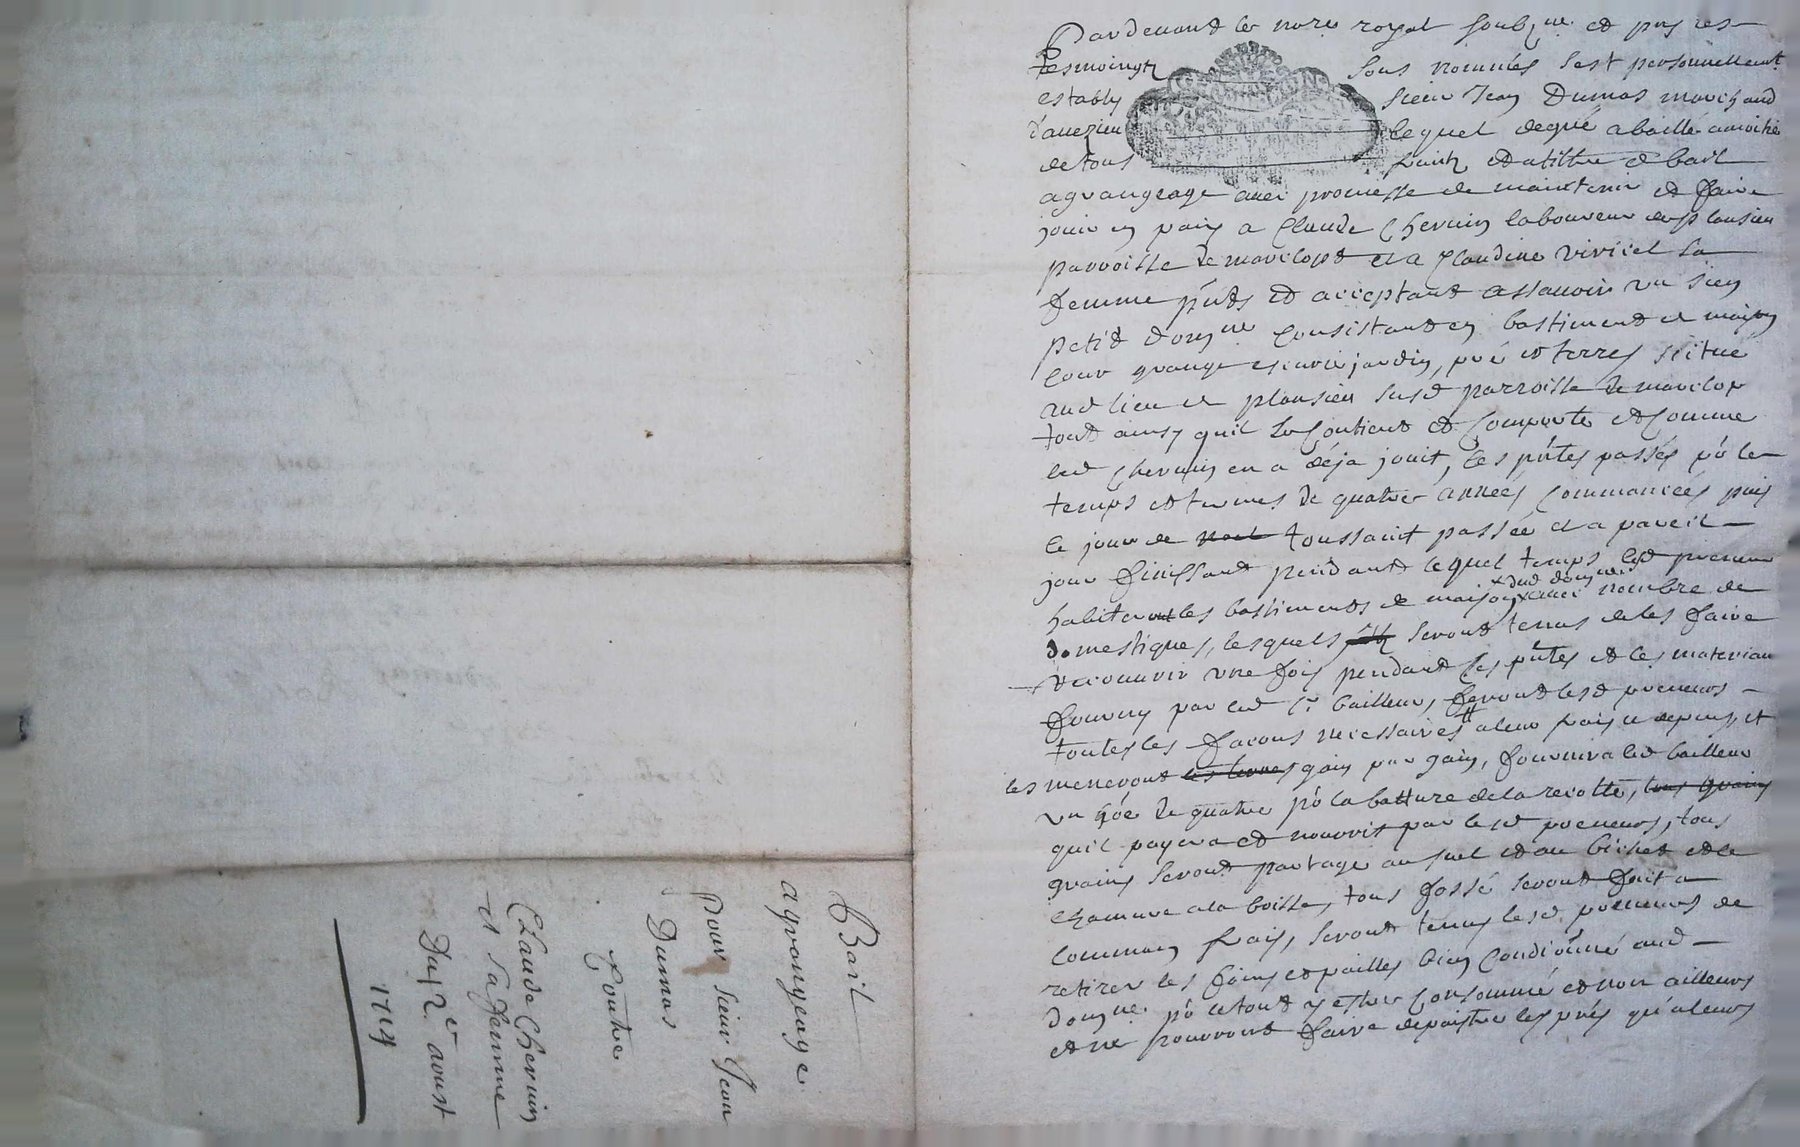 Bail
agrangeage
Pour sieur Jean
Dumas
Contre
Claude Chervin
et sa femme
Du 12e aoust
1719
Pardevant le nore royal soubzne et pns les
tesmoingtz sous nommés s'est personnellemt
estably sieur Jean Dumas marchand
d'avezieu lequel degré a baillé a moitié
de tous fruitz et a tiltre de bail
agrangeage avec promesse de maintenir et faire
jouir en paix a Claude Chervin laboureur de plansieu
parroisse de marclopt et a Claudine viricel sa
femme pnts et acceptant assavoir un sien
petit domne consistant en bastiment de maison
cour grange escurie jardin, pré et terres scitué
aud lieu de plansieu susd parroisse de marclop
tout ainsy quil se contient et comporte et comme
led Chervin en a déja jouit, les pntes passés pr le
temps et termes de quatre années commancées puis
le jour de toussaint passée et a pareil
jour finissant pendant lequel temps lesd preneur
habiteront les bastiments de maison dud domne avec nombre de
domestiques, lesquels seront tenus de les faire
recouvrir une fois pendant les pntes et les materiau
fourny par led sr bailleur, feront lesd preneurs
toutes les facons necessaires a leur frais et depens, et
les meneront gain par gain, fournira led bailleur
un de quatre pr la batture de la recolte,
quil payera et nourrit par lesd preneurs, tous
grains seront partage au suel et au bichet et le
chanvre a la boisse, tous fossé seront fait a
commun frais, seront tenus lesd preneurs de
retirer les foins et pailles bien condionné aud
domne pr le tout y estre consommé et non ailleurs
et ne pourront faire depaistre les prés qu'a leurs